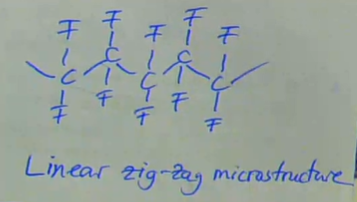 F F F F F
C C C C C
F F F F F
Linear zig-zag microstructure